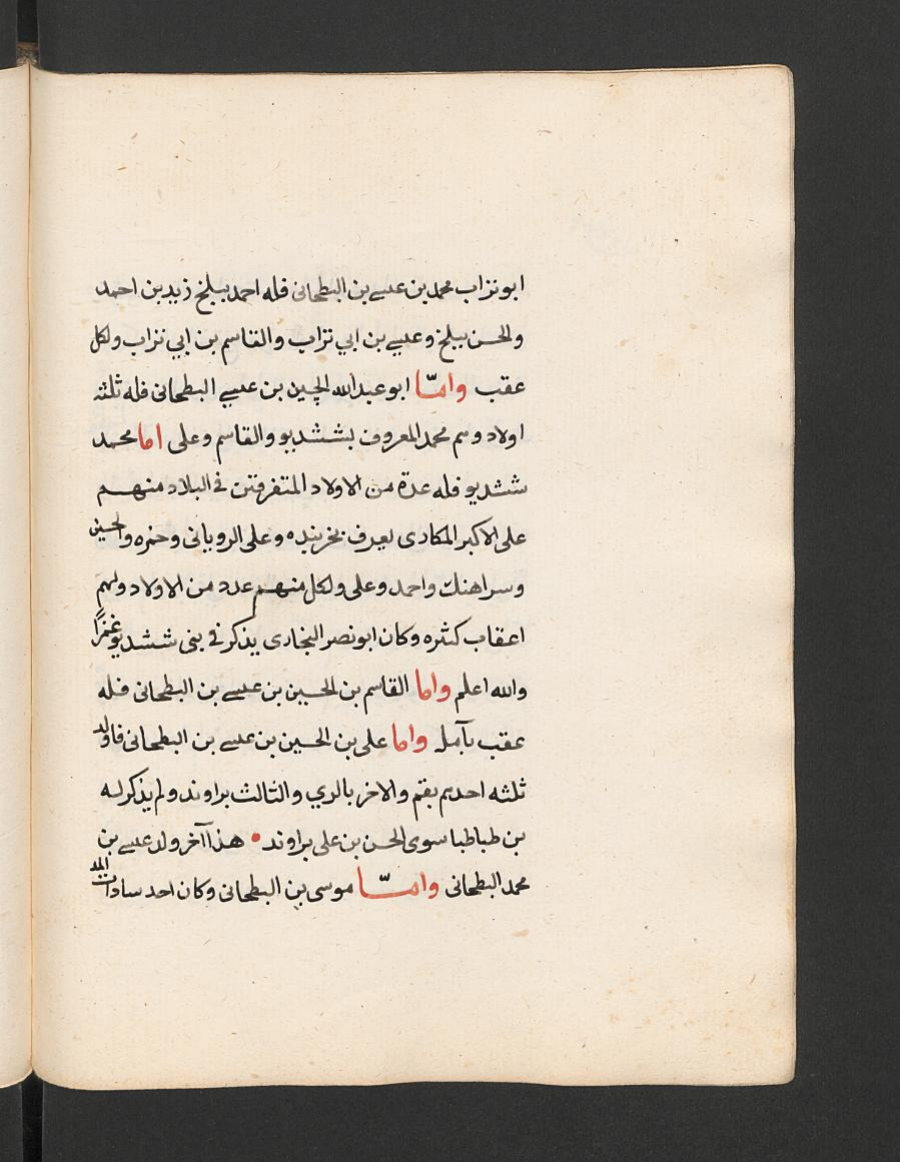 ابو تراب محمد بن عيسى بن البطحانى فله احمد ببلخ زيد بن احمد
والحسن ببلخ وعيسى بن ابي تراب والقاسم بن ابي تراب ولكل
عقب وامّا ابو عبد الله الحسين بن عيسى البطحانى فله ثلثه
اولاد وهم محمد المعروف بششديو والقاسم وعلى اما محمد
ششديو فله عدة من الاولاد المتفرقين فى البلاد منهم
على الاكبر المكارى يعرف بخربنده وعلى الرويانى وحمزه والحسين
وسراهنك واحمد وعلى ولكل منهم عدد من الاولاد ولهم
اعقاب كثره وكان ابو نصر البخارى يذكر فى بنى ششديو غمزاً
والله اعلم واما القاسم بن الحسين بن عيسى بن البطحانى فله
عقب بآمل واما على بن الحسين بن عيسى بن البطحانى فاولد
ثلثه احدهم بقم والاخر بالري والثالث براوند ولم يذكر له
بن طباطبا سوى الحسن بن على براوند • هذا آخر ولد عيسى بن
محمد البطحانى وامّا موسى بن البطحانى وكان احد سادات